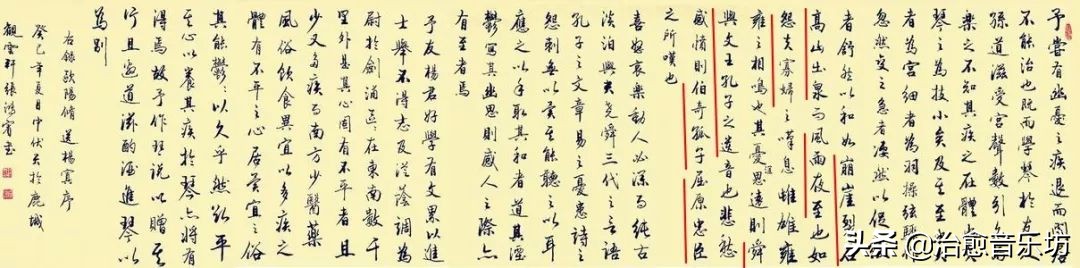 予嘗有幽憂之疾退而閒居
不能治也既而學琴於友人
孫道滋受宮聲數引久而
樂之不知其疾之在體也夫
琴之為技小矣及其至也大
者為宮細者為羽操弦驟作
忽然變之急者凄然以促緩
者舒然以和如崩崖裂石
高山出泉而風雨夜至也如
怨夫寡婦之嘆息雌雄雍
雍之相鳴也其憂深思遠則舜
與文王孔子之遺音也悲愁
感憤則伯奇孤子屈原忠臣
之所嘆也
喜怒哀樂動人必深而純古
淡泊與夫堯舜三代之言語
孔子之文章易之憂患詩之
怨刺無以異其能聽之以耳
應之以手取其和者道其湮
鬱寫其幽思則感人之際亦
有至者焉
予友楊君好學有文累以進
士舉不得志及從蔭調為
尉於劍浦區區在東南數千
里外是其心固有不平者且
少又多疾而南方少醫藥
風俗飲食異宜以多疾之
體有不平之心居異宜之俗
其能鬱鬱以久乎然欲平
其心以養其疾於琴亦將有
得焉故予作琴說以贈其
行且邀道滋酌酒進琴以
為別
右錄歐陽脩送楊寘序
癸巳年夏月中伏書於鹿城
觀雲軒張鴻賓書
头条@治愈音乐坊